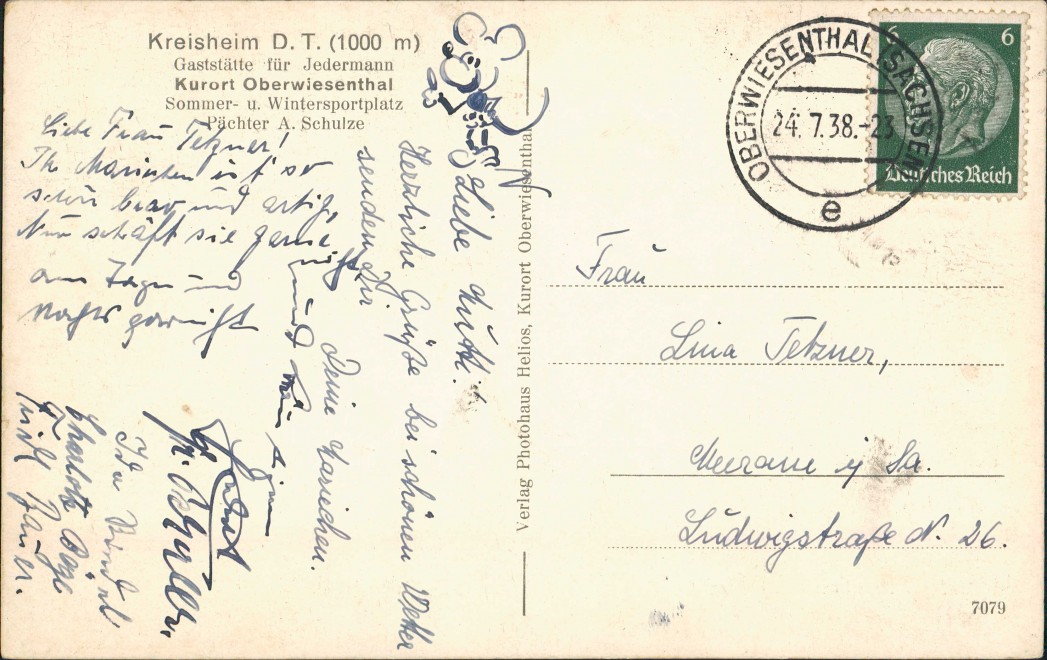 Kreisheim D. T. (1000 m)
Gaststätte für Jedermann
Kurort Oberwiesenthal
Sommer- u. Wintersportplatz
Pächter A. Schulze
Liebe Frau Tetzner!
Ihr Mariechen ist so
schön brav und artig,
Nur schläft sie gerne
am Tage und
Nachts gar nicht
Liebe Mutti!
Herzliche Grüße bei schönen Wetter
senden Dir
Deine Mariechen.
und
Ida
Charlotte
Verlag Photohaus Helios, Kurort Oberwiesenthal
OBERWIESENTHAL (SACHSEN)
24. 7. 38.-23
e
6
6
Deutsches Reich
Frau
Lina Tetzner,
Meerane i/ Sa.
Ludwigstraße N. 26.
7079